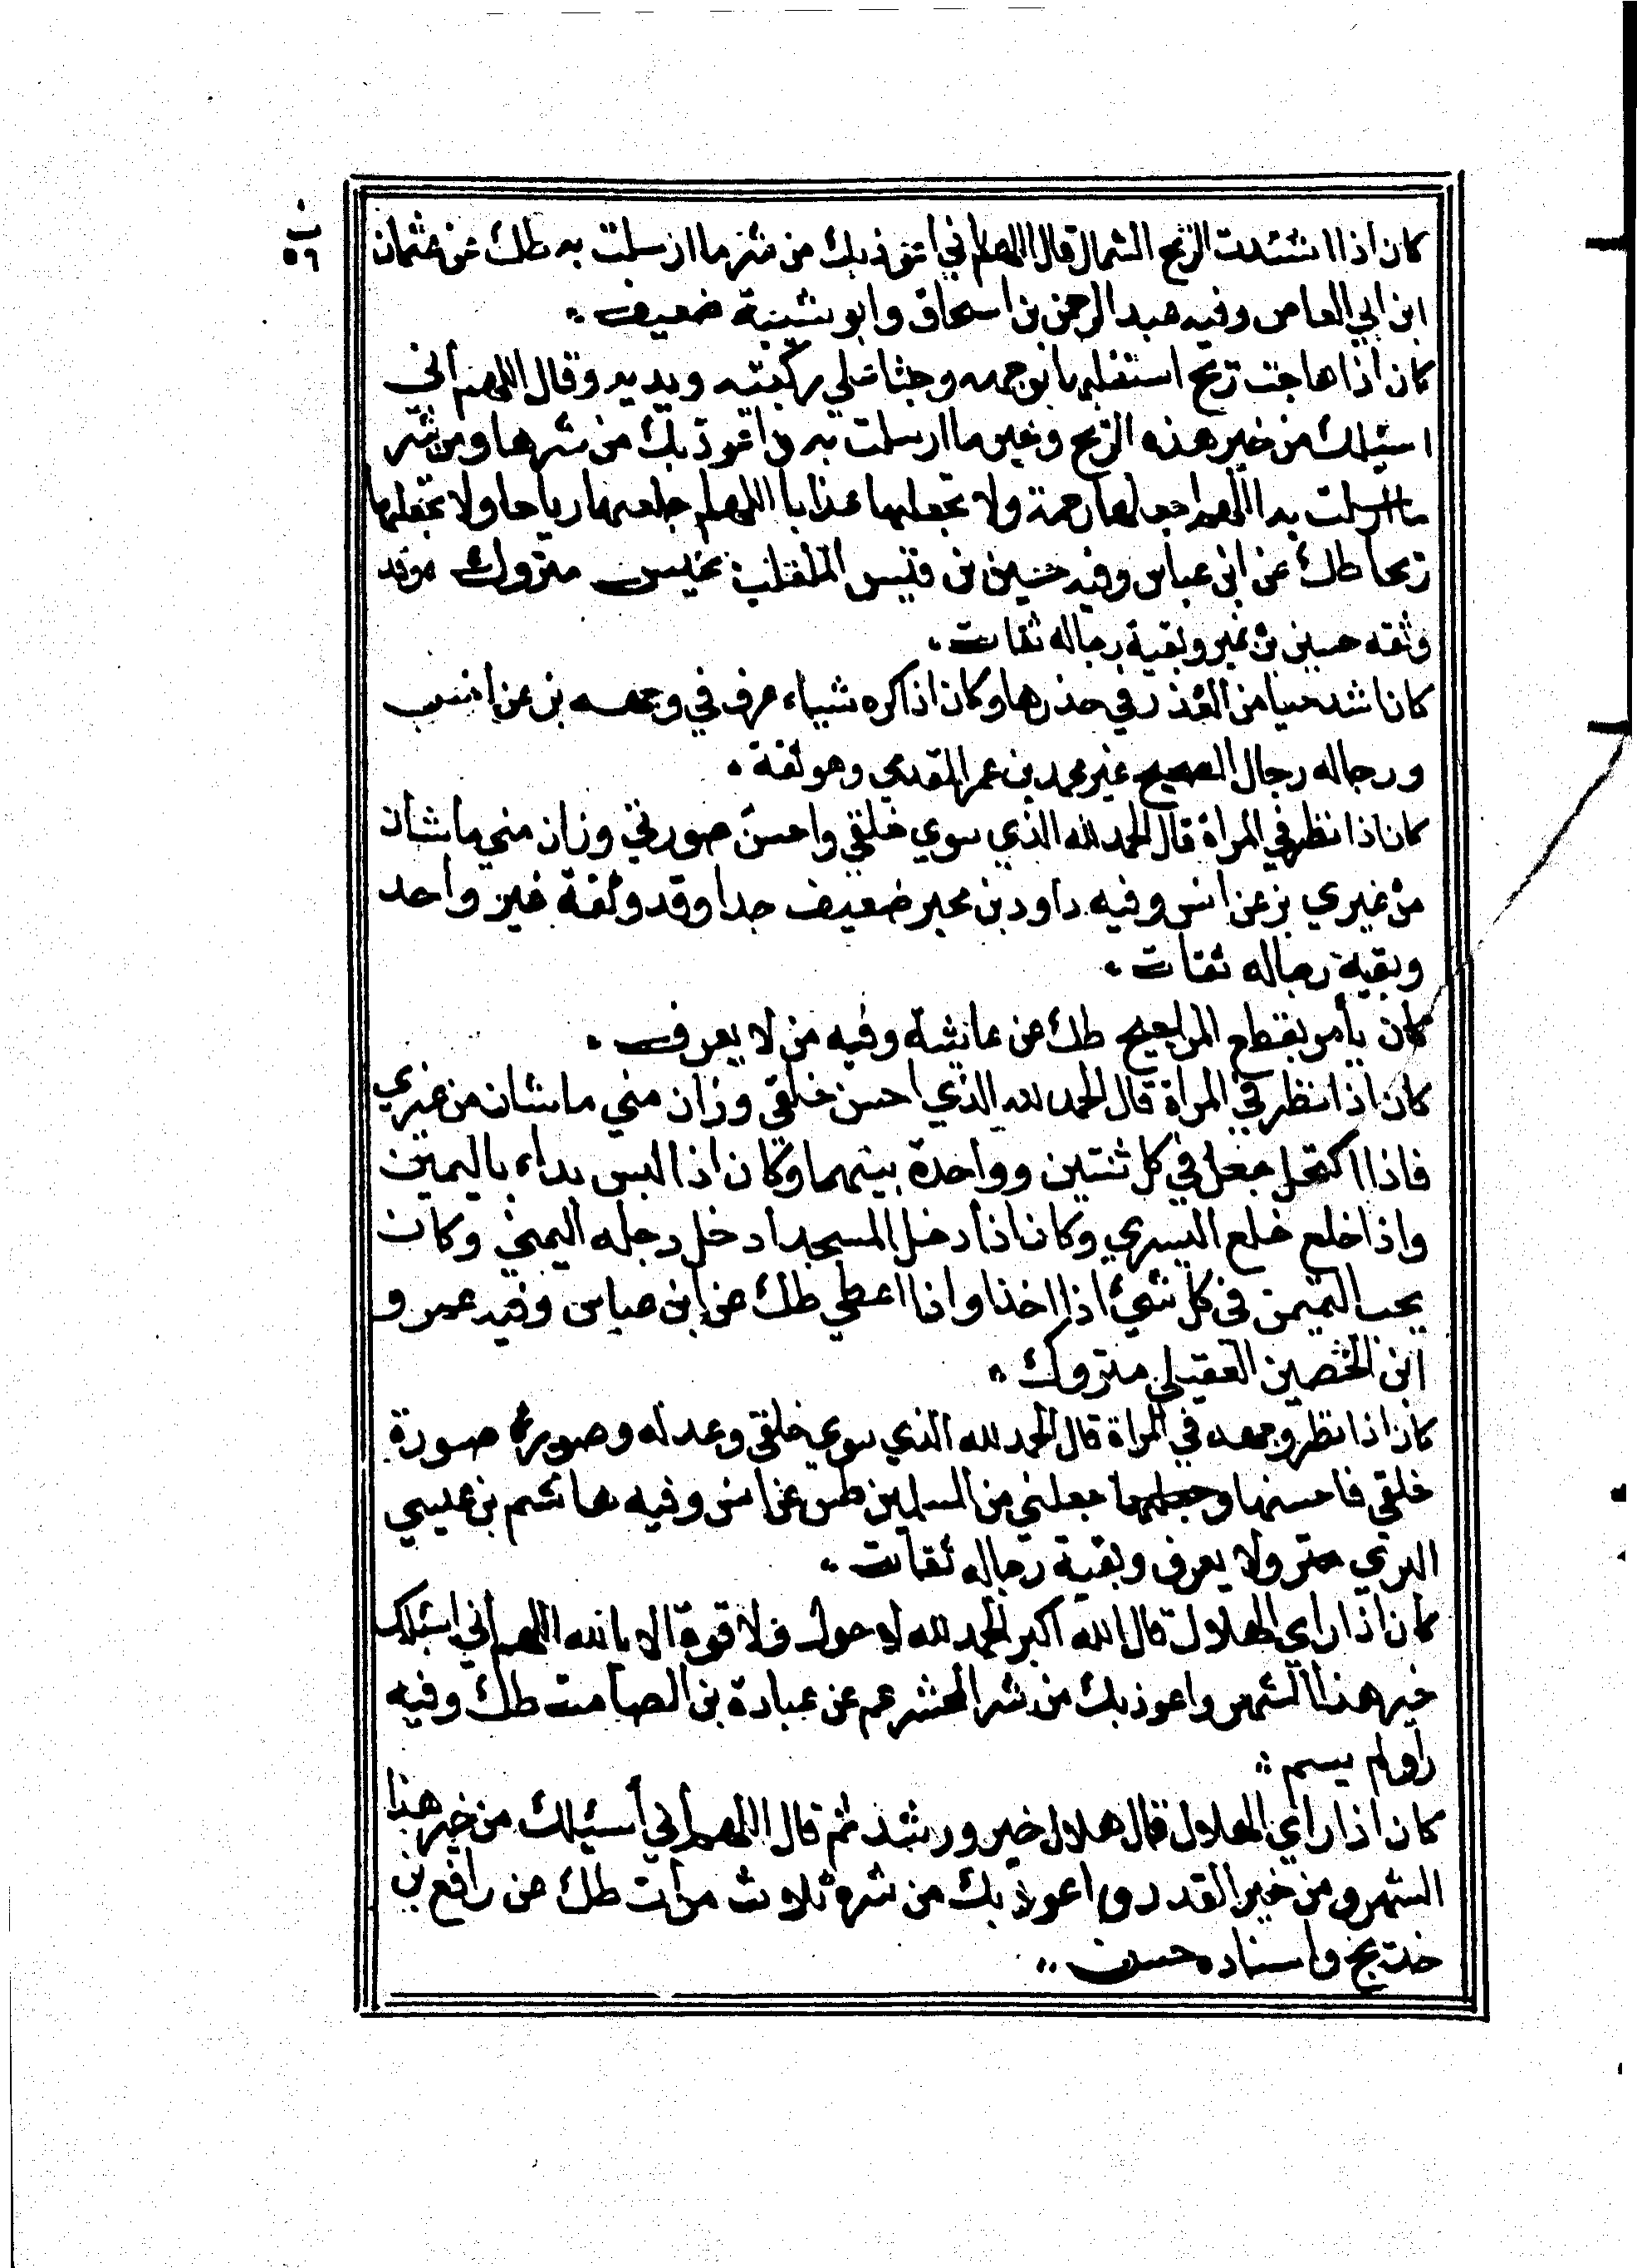 ن
٥٦
كان اذا اشتدت الريح الشمال قال اللهم اني اعوذ بك من شر ما ارسلت به طك عن عثمان
ابن ابي العاص وفيه عبد الرحمن بن اسحاق وابو شيبة ضعيف
كان اذا هاجت ريح استقبلها بوجهه وجثا علي ركبتيه ويديه وقال اللهم اني
اسئلك من خير هذه الريح وخير ما ارسلت به واعوذ بك من شرها ومن شر
ما ارسلت به اللهم اجعلها رحمة ولا تجعلها عذابا اللهم اجعلها رياحا ولا تجعلها
ريحا طك عن ابن عباس وفيه حسين بن قيس الملقب بخيس متروك وقد
وثقه حسين بن نمير وبقية رجاله ثقات
كان اشد حيا من العذر في حذرها وكان اذا كره شياء عرف في وجهه بز عن انس
ورجاله رجال الصحيح غير محمد بن عمر المقدمي وهو ثقة
كان اذا نظر في المراة قال الحمد لله الذي سوي خلقي واحسن صورتي وزان مني ما شان
من غيري بز عن انس وفيه داود بن محبر ضعيف جدا وقد وثقة غير واحد
وبقية رجاله ثقات
كان يأمر بقطع المراجيح طك عن عايشة وفيه من لا يعرف
كان اذا نظر في المراة قال الحمد لله الذي احسن خلقي وزان مني ما شان من غيري
فاذا اكتحل جعل في كل ثنتين وواحدة بينهما وكان اذا لبس بداء باليمين
واذا خلع خلع اليسري وكان اذا دخل المسجد ادخل رجله اليمني وكان
يحب التيمن في كل شيئ اذا اخذ واذا اعطي طك عن ابن عباس وفيه عمرو
ابن الحصين العقيلي متروك
كان اذا نظر وجهه في المراة قال الحمد لله الذي سوي خلقي وعدله وصورة صورة
خلقي فاحسنها وجعلها جعلني من المسلمين طس عن انس وفيه هاشم بن عيسي
البري متر ولا يعرف وبقية رجاله ثقات
كان اذا راي الهلال قال الله اكبر الحمد لله لا حول ولا قوة الا بالله اللهم اني اسئلك
خير هذا الشهر واعوذ بك من شر المحشر عم عن عبادة بن الصامت طك وفيه
راو لم يسم
كان اذا راي الهلال قال هلال خير ورشد ثم قال اللهم اني أسئلك من خير هذا
الشهر ومن خير القدر واعوذ بك من شره ثلاث مرات طك عن رافع بن
خديج واسناده حسن